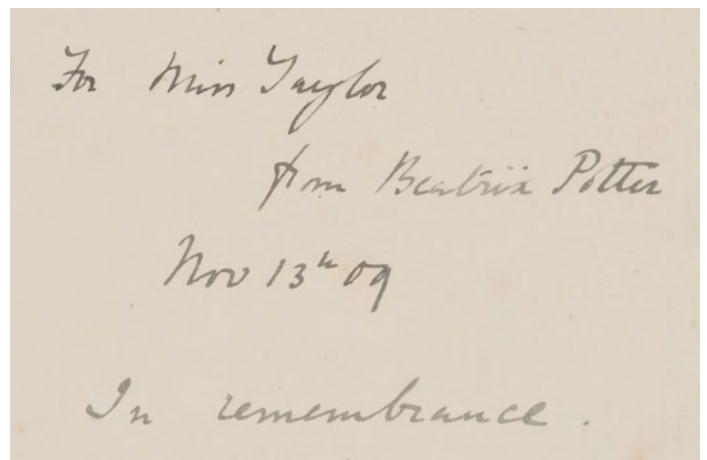 For Miss Taylor
from Beatrix Potter
Nov 13th 09
In remembrance.